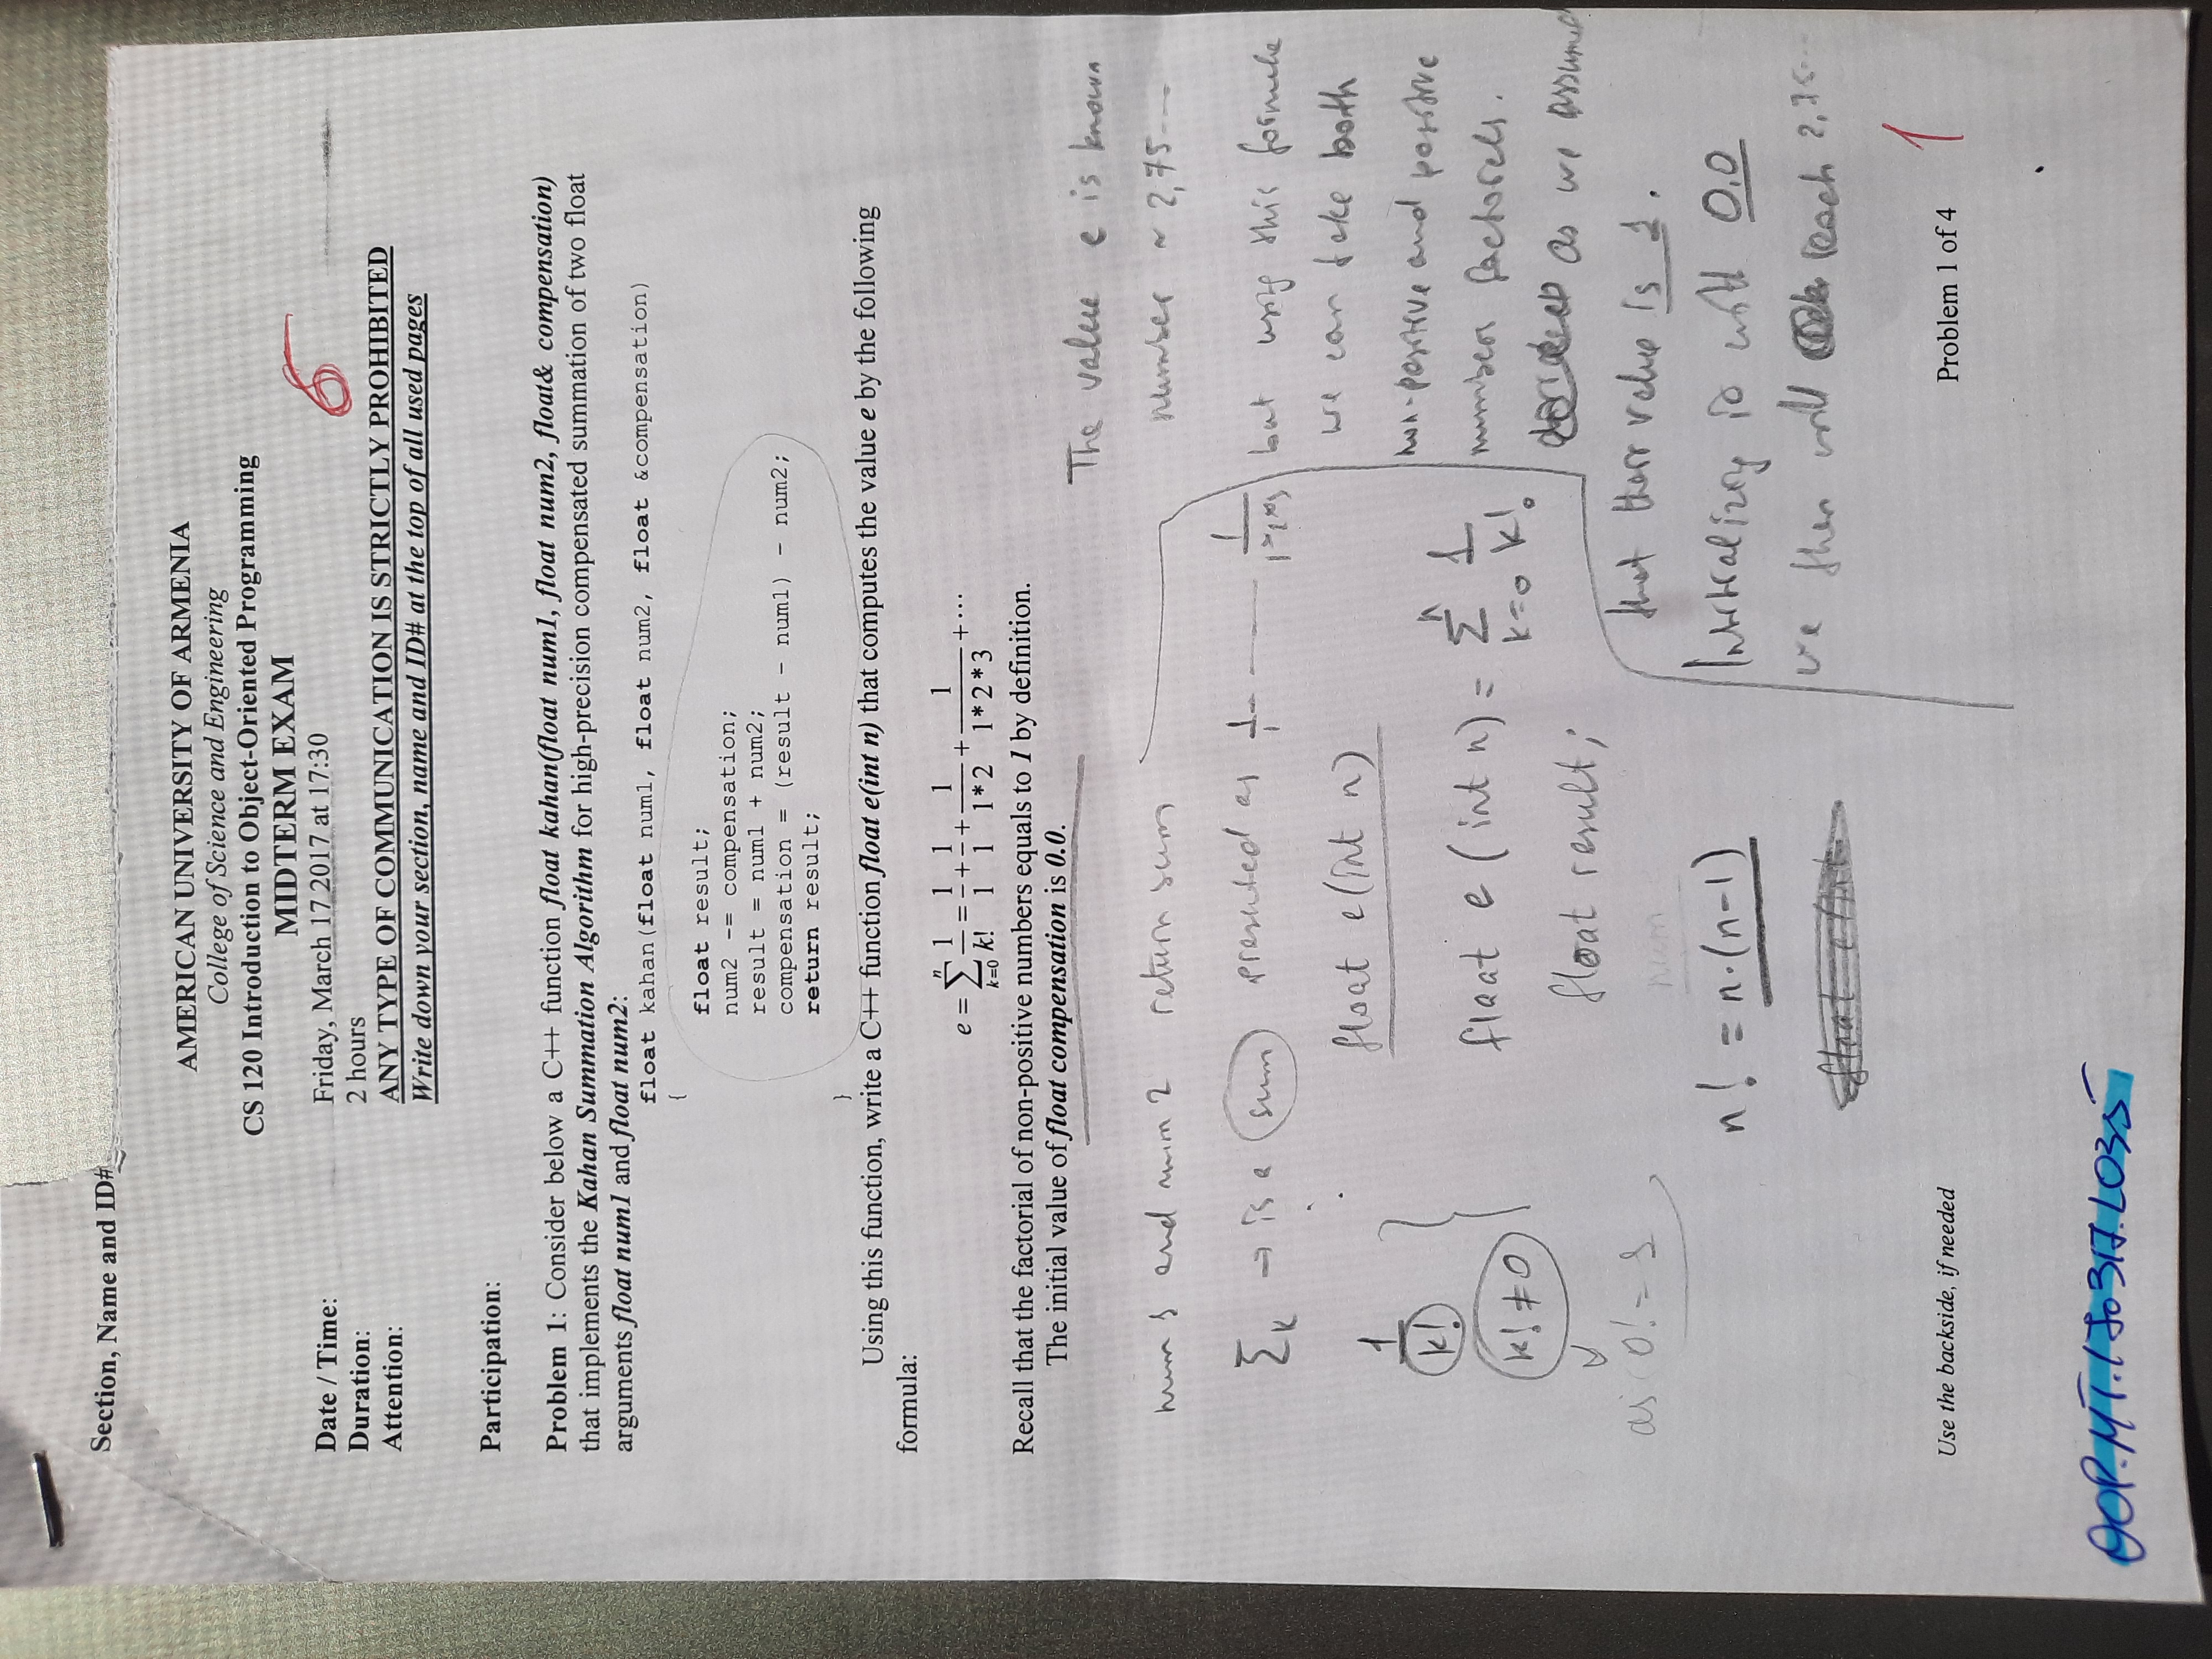 Section, Name and ID#
AMERICAN UNIVERSITY OF ARMENIA
College of Science and Engineering
CS 120 Introduction to Object-Oriented Programming
MIDTERM EXAM
6
Date / Time: Friday, March 17 2017 at 17:30
Duration: 2 hours
Attention: ANY TYPE OF COMMUNICATION IS STRICTLY PROHIBITED
Write down your section, name and ID# at the top of all used pages
Participation:
Problem 1: Consider below a C++ function float kahan(float num1, float num2, float& compensation)
that implements the Kahan Summation Algorithm for high-precision compensated summation of two float
arguments float num1 and float num2:
float kahan(float num1, float num2, float &compensation)
{
float result;
num2 -= compensation;
result = num1 + num2;
compensation = (result - num1) - num2;
return result;
}
Using this function, write a C++ function float e(int n) that computes the value e by the following
formula:
e = ∑ₖ₌₀ⁿ 1/k! = 1/1 + 1/1 + 1/1*2 + 1/1*2*3 + ⋯
Recall that the factorial of non-positive numbers equals to 1 by definition.
The initial value of float compensation is 0.0.
num 1 and num 2 return sum
∑k → is a sum presented as 1/1 — 1/1*2*3
float e(int n)
1/k!
k! ≠ 0
as 0! = 1
float e (int n) = ∑ₖ₌₀ⁿ 1/k!
float result;
num
n! = n·(n-1)
float e(int
The value e is known
number ~ 2,75...
but using this formula
we can take both
non-positive and positive
numbers factorels.
as we assumed
that their value is 1.
Initializing it with 0.0
we then will reach 2,75...
Use the backside, if needed
Problem 1 of 4
1
OOP.MT.170317.L035